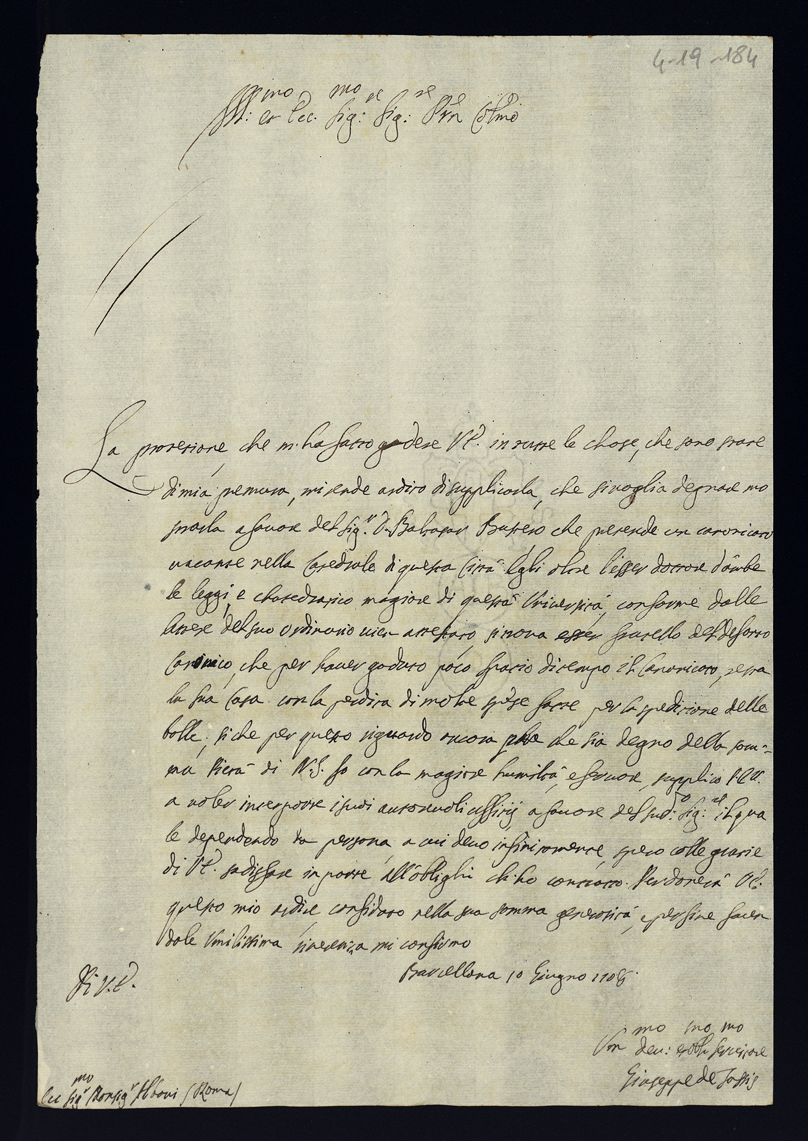 4-19-184
Ill:mo et Ecc.mo Sig:re Sig:re Prn Colmo
La protetione, che m'ha fatto godere V.E. in tutte le chose, che sono state
di mia premura, mi rende ardito di supplicarla, che si voglia degnare mo
strarla a favore del Sig.r D. Baltasar Bastero che pretende un canonicato
vacante nella Catedrale di questa Città. Egli oltre l'esser dottore d'ambe
le leggi, e chatedratico magiore di questa Università, conforme dalle
lettere del suo ordinario vien attestato, si trova esser fratello del defonto
Canonico, che per haver goduto poco spatio di tempo il Canonicato, resta
la sua Casa con la perdita di molte spese fatte per la spedizione delle
bolle; si che per questo riguardo ancora pare che sia degno della som-
ma Pietà di N.S. Io con la magiore humiltà, e fervore, supplico V.E.
a voler interporre i suoi autorevoli uffitij a favore del sud:o Sig:re il qua
le dependendo da persona a cui devo infinitamente, spero colle gratie
di V.E. sodisfare in parte all'oblighi ch'ho contratto. Perdonerà V.E.
questo mio ardire confidato nella sua somma generosità, e per fine facen
dole umilissima riverenza mi confirmo
Barcellona 10 Giugno 1708
Di V.E.
Um:mo dev:mo et obl:mo servitore
Giuseppe de Tassis
Ecc.mo Sig.r Monsig.r Albani (Roma)